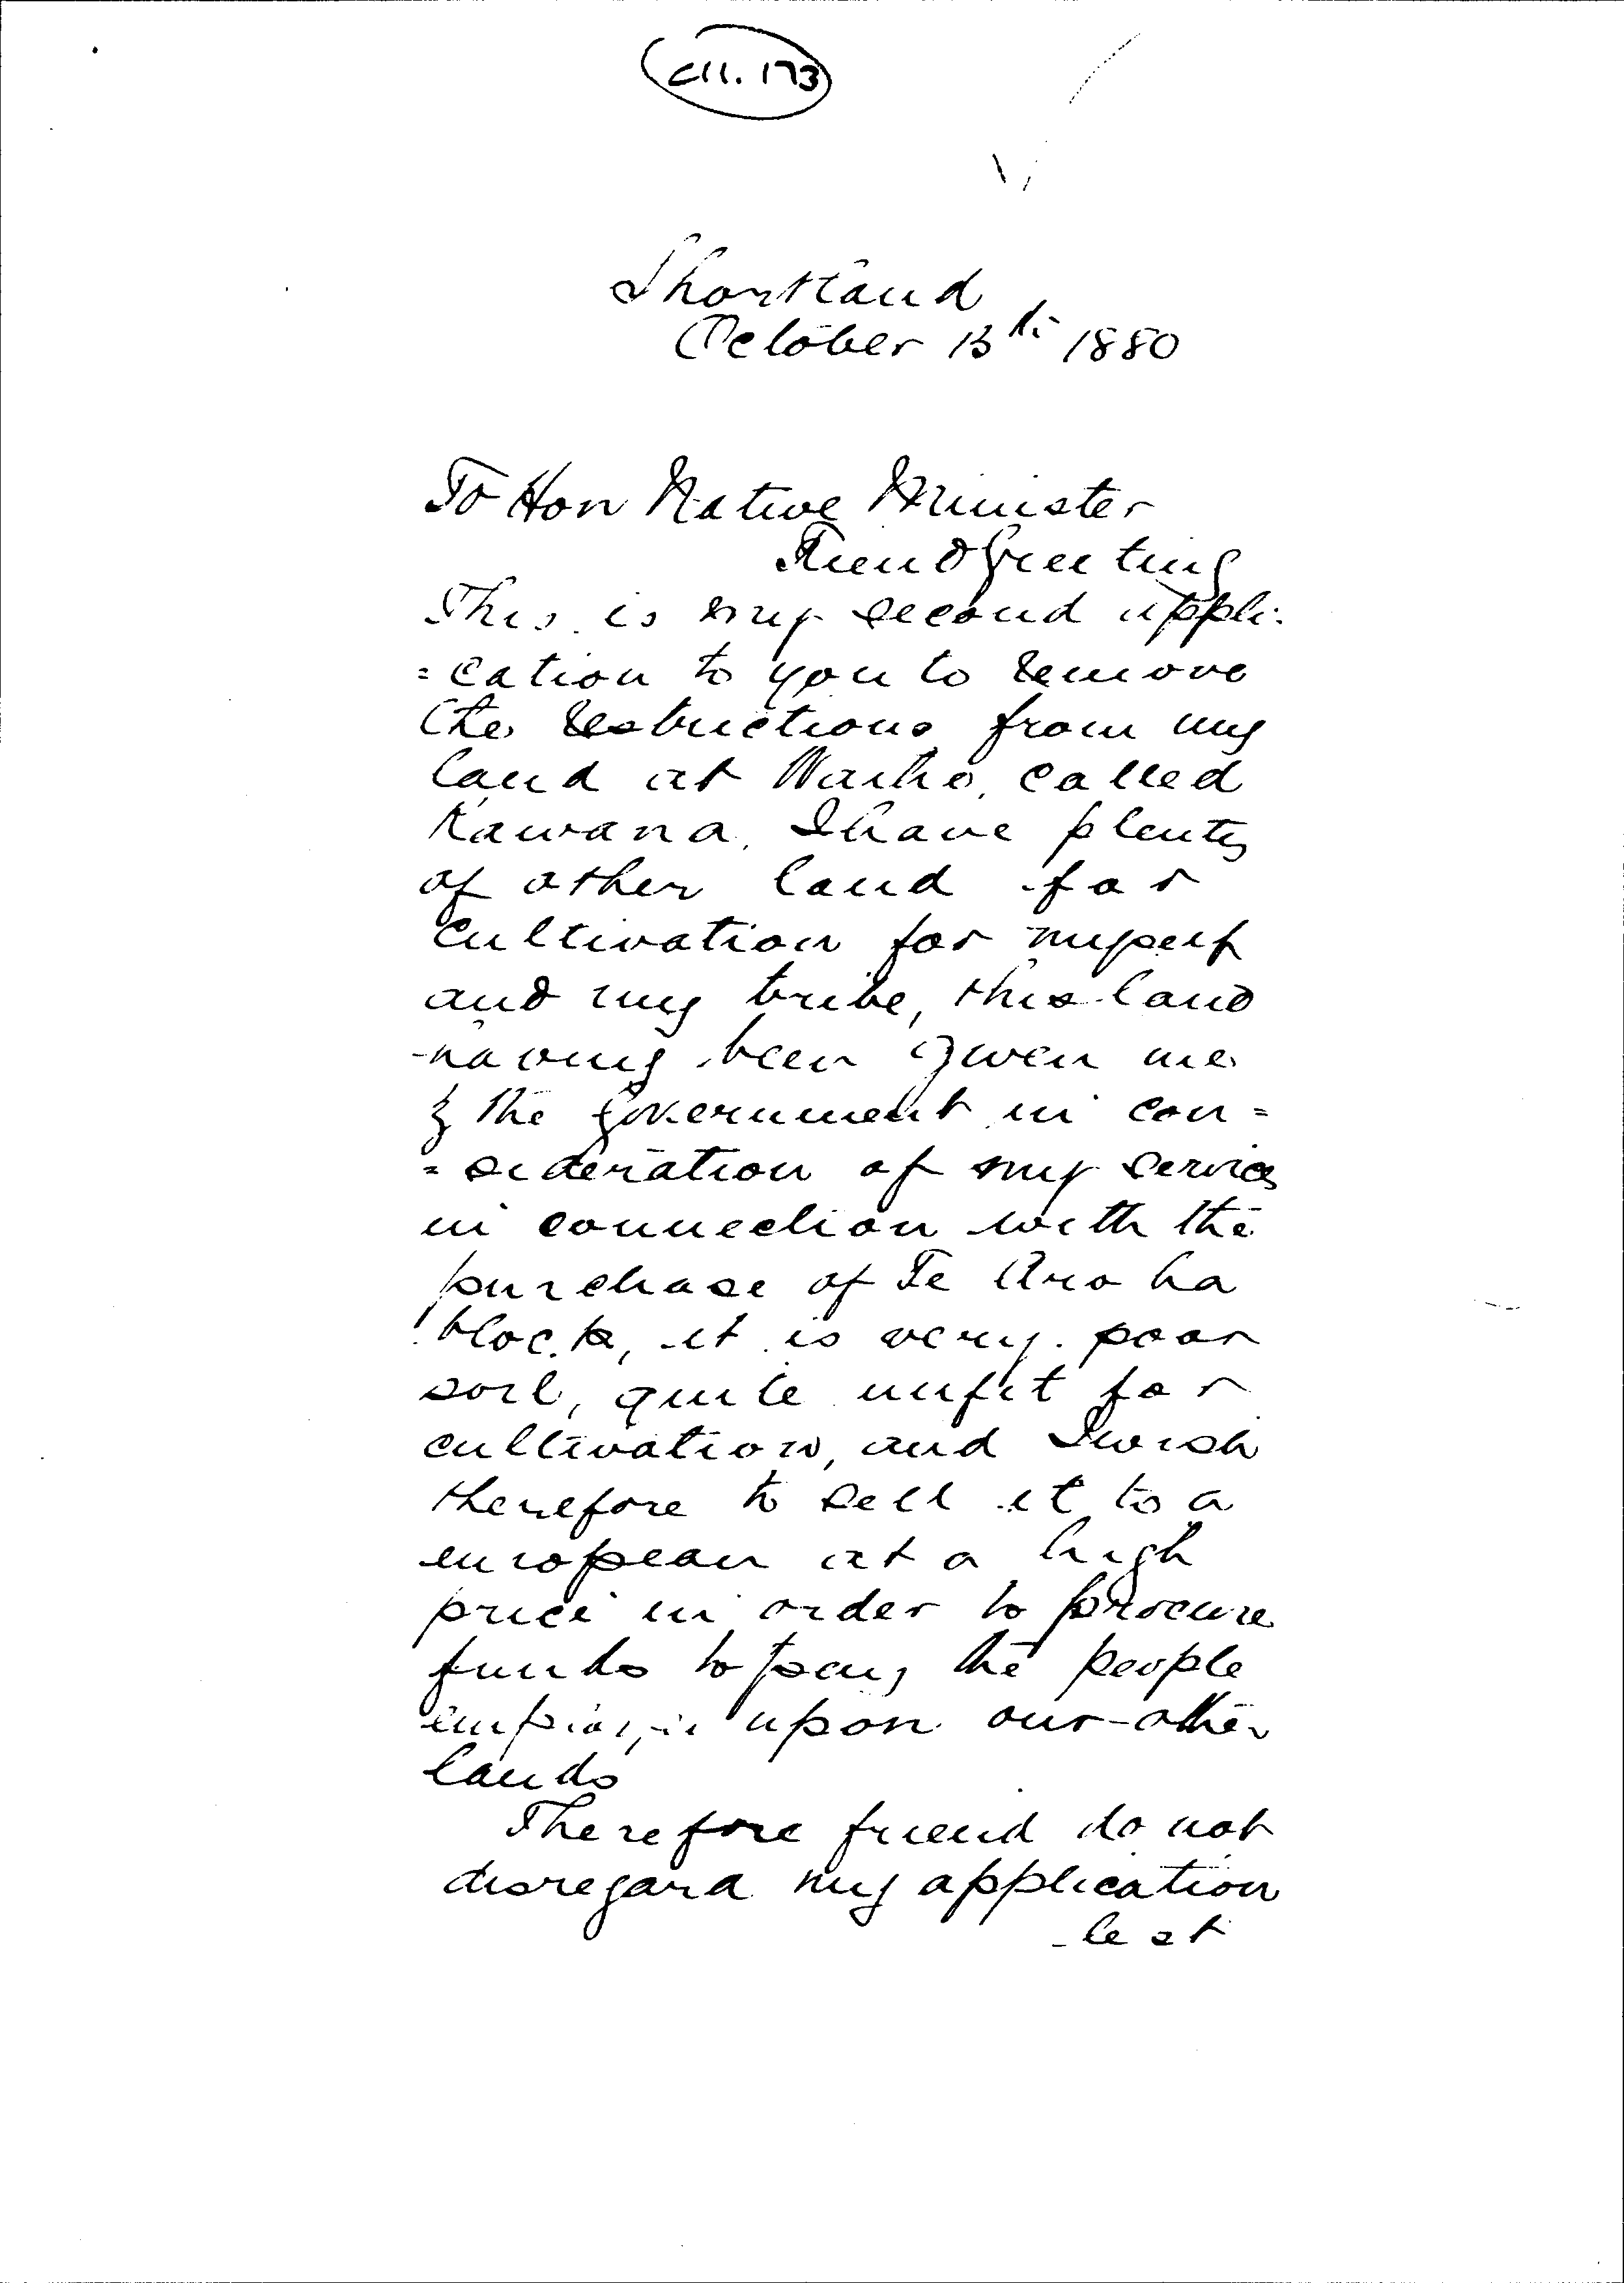 C11. 173
Shortland
October 13th 1880
To Hon Native Minister
Friend Greeting
This is my second appli-
=cation to you to remove
the restrictions from my
land at Waihо, called
Kawana. I have plenty
of other land for
cultivation for myself
and my tribe, this land
having been given me
by the Government in con=
=sideration of my services
in connection with the
purchase of Te Aroha
block, it is very poor
soil, quite unfit for
cultivation, and I wish
therefore to sell it to a
european at a high
price in order to procure
funds to pay the people
upon our other
lands
Therefore friend do not
disregard my application
lest